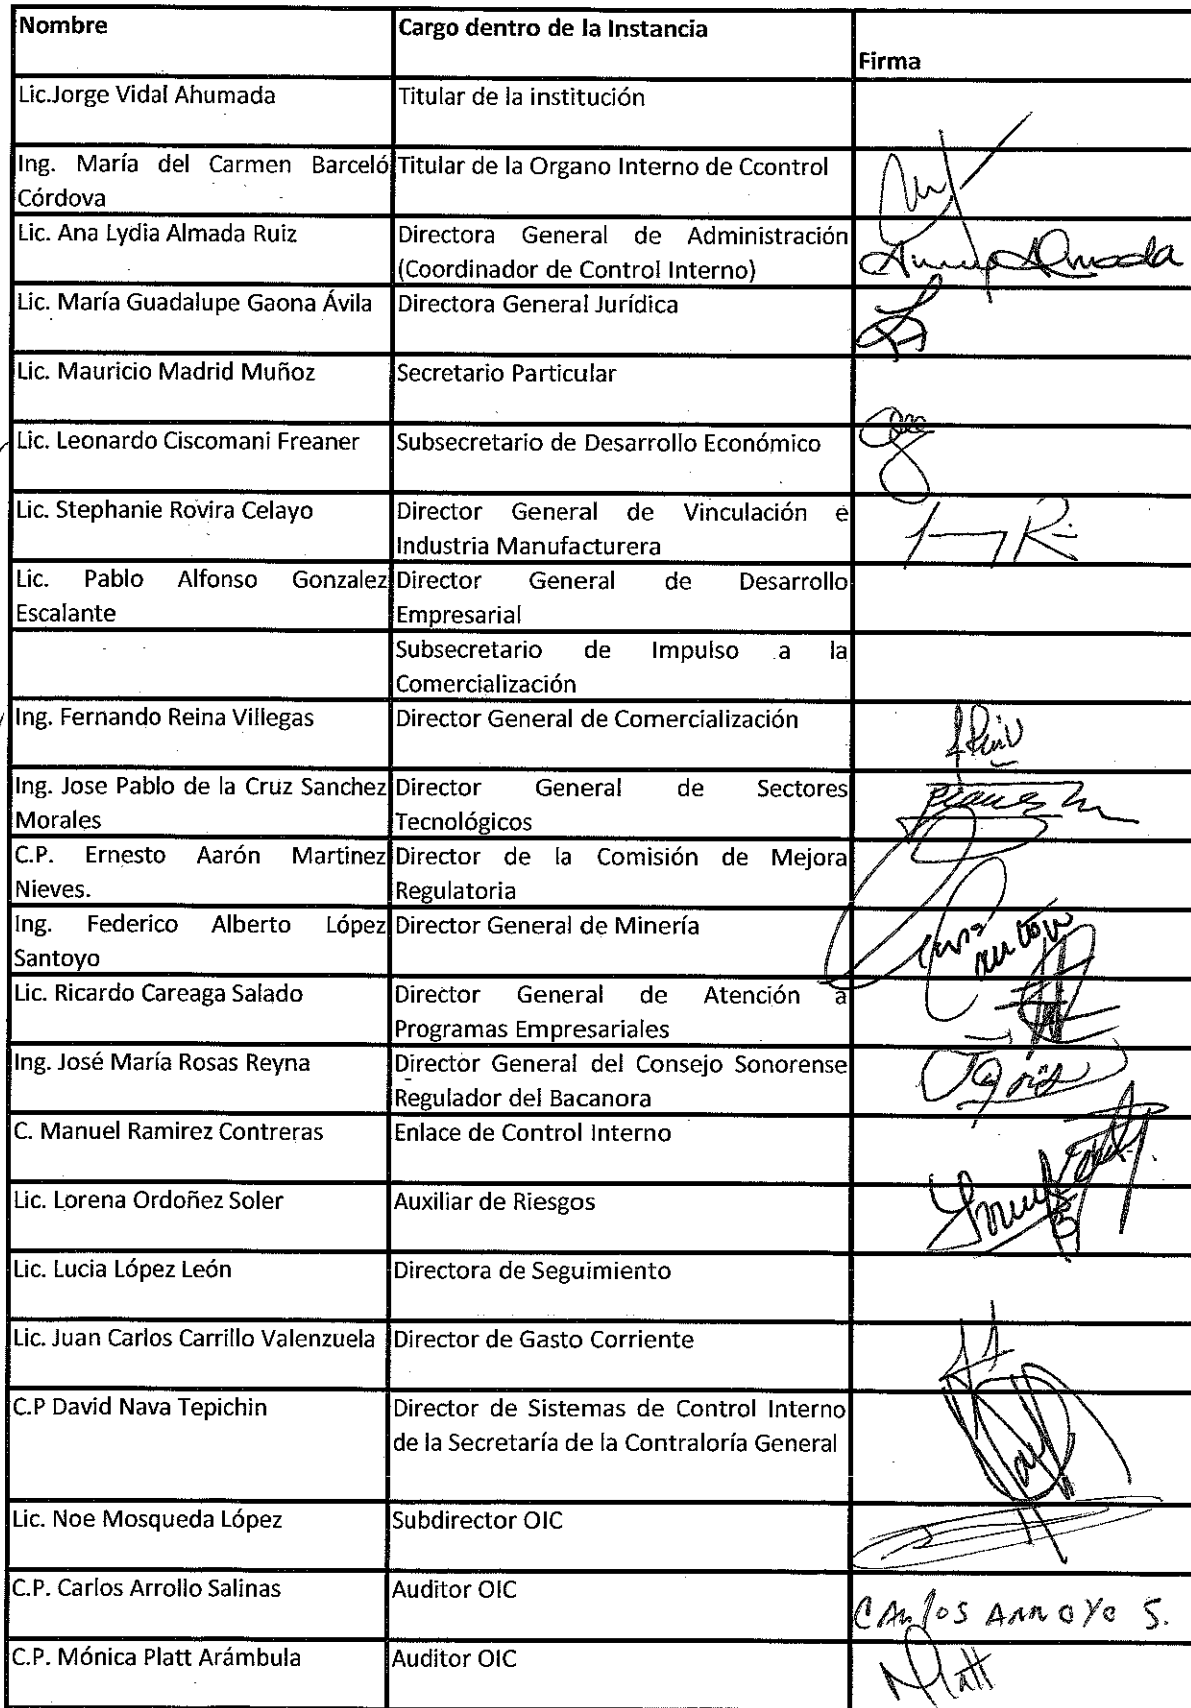 Nombre
Cargo dentro de la Instancia
Firma
Lic.Jorge Vidal Ahumada
Titular de la institución
Ing. María del Carmen Barceló
Córdova
Titular de la Organo Interno de Ccontrol
Lic. Ana Lydia Almada Ruiz
Directora General de Administración
(Coordinador de Control Interno)
Almada
Lic. María Guadalupe Gaona Ávila
Directora General Jurídica
Lic. Mauricio Madrid Muñoz
Secretario Particular
Lic. Leonardo Ciscomani Freaner
Subsecretario de Desarrollo Económico
Lic. Stephanie Rovira Celayo
Director General de Vinculación e
Industria Manufacturera
Lic. Pablo Alfonso Gonzalez
Escalante
Director General de Desarrollo
Empresarial
Subsecretario de Impulso a la
Comercialización
Ing. Fernando Reina Villegas
Director General de Comercialización
Ing. Jose Pablo de la Cruz Sanchez
Morales
Director General de Sectores
Tecnológicos
C.P. Ernesto Aarón Martinez
Nieves.
Director de la Comisión de Mejora
Regulatoria
Ing. Federico Alberto López
Santoyo
Director General de Minería
Lic. Ricardo Careaga Salado
Director General de Atención a
Programas Empresariales
Ing. José María Rosas Reyna
Director General del Consejo Sonorense
Regulador del Bacanora
C. Manuel Ramirez Contreras
Enlace de Control Interno
Lic. Lorena Ordoñez Soler
Auxiliar de Riesgos
Lic. Lucia López León
Directora de Seguimiento
Lic. Juan Carlos Carrillo Valenzuela
Director de Gasto Corriente
C.P David Nava Tepichin
Director de Sistemas de Control Interno
de la Secretaría de la Contraloría General
Lic. Noe Mosqueda López
Subdirector OIC
C.P. Carlos Arrollo Salinas
Auditor OIC
CARlos ARROYO S.
C.P. Mónica Platt Arámbula
Auditor OIC
MPlatt